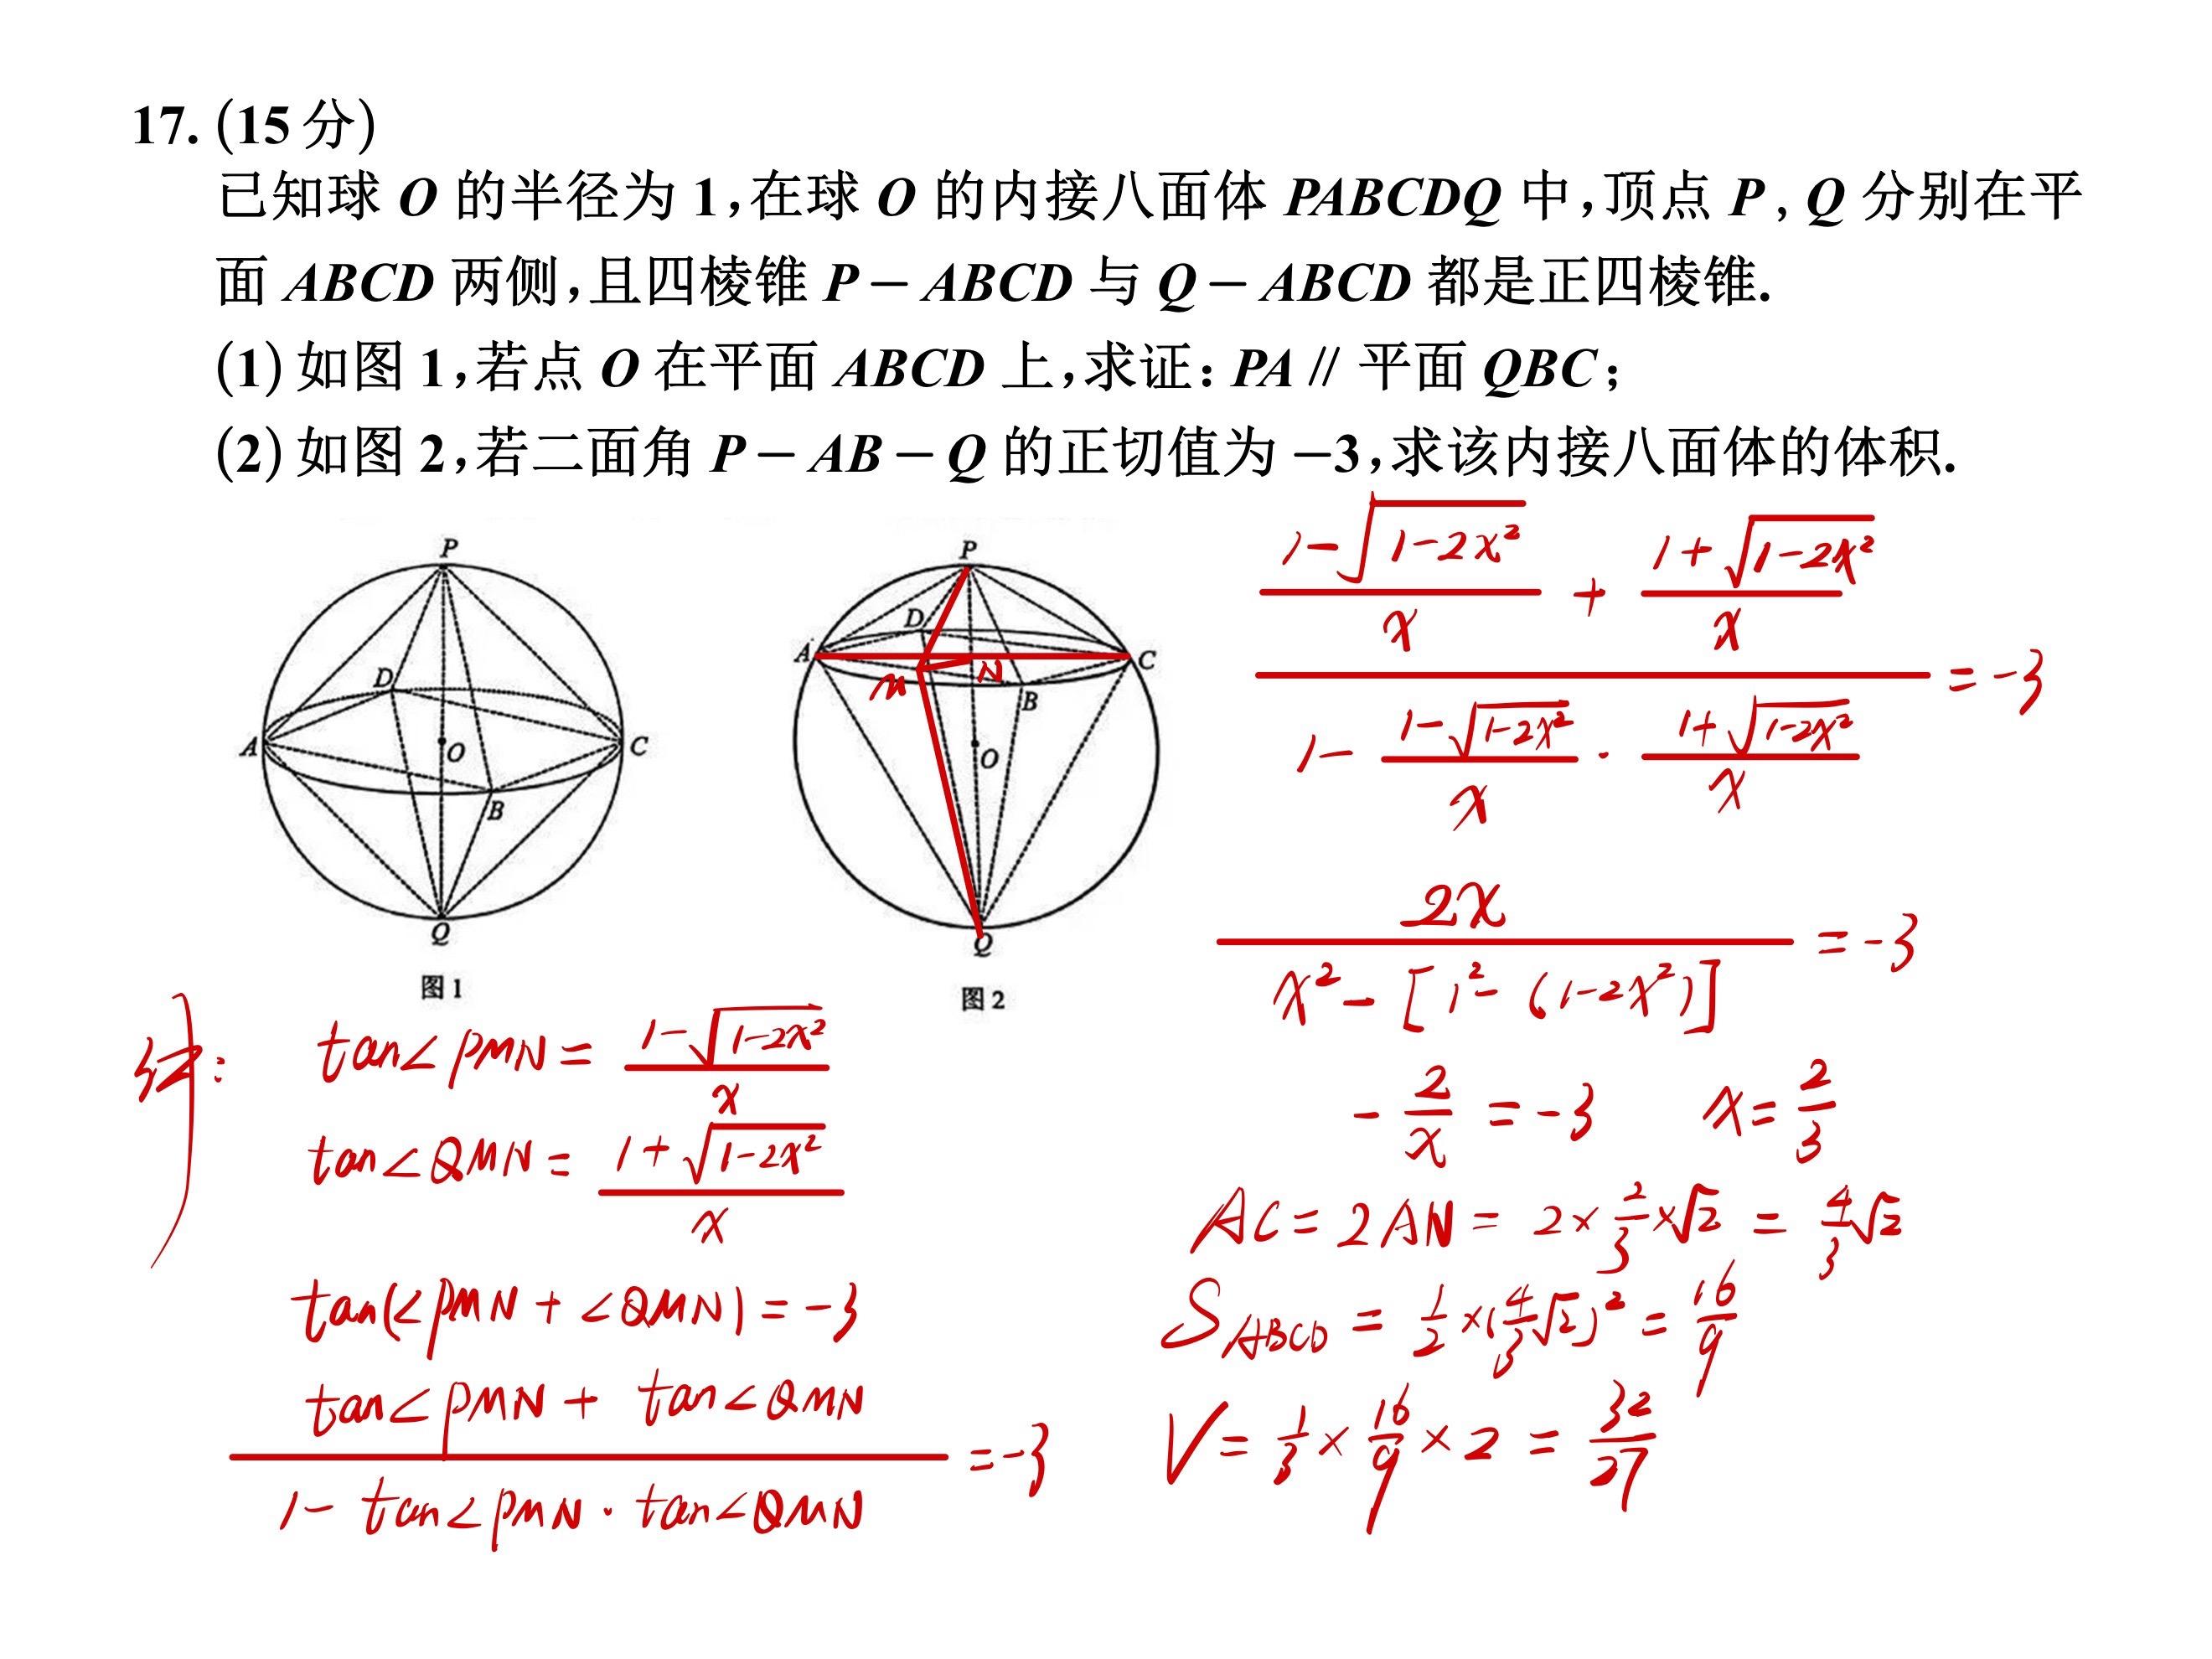 17. (15分)
已知球 O 的半径为 1,在球 O 的内接八面体 PABCDQ 中,顶点 P, Q 分别在平
面 ABCD 两侧,且四棱锥 P－ABCD 与 Q－ABCD 都是正四棱锥.
(1) 如图 1,若点 O 在平面 ABCD 上,求证: PA∥平面 QBC;
(2) 如图 2,若二面角 P－AB－Q 的正切值为 −3,求该内接八面体的体积.
P
D
A
O
C
B
Q
图1
P
D
A
N
C
M
B
O
Q
图2
tan∠PMN = (1-√(1-2x²))/x
tan∠QMN = (1+√(1-2x²))/x
tan(∠PMN + ∠QMN) = -3
(tan∠PMN + tan∠QMN)/(1- tan∠PMN · tan∠QMN) = -3
((1-√(1-2x²))/x + (1+√(1-2x²))/x)/(1- (1-√(1-2x²))/x · (1+√(1-2x²))/x) = -3
2x/(x² - [1² - (1-2x²)]) = -3
- 2/x = -3 x = 2/3
AC = 2AN = 2×2/3×√2 = 4/3√2
S ABCD = 1/2 ×(4/3√2)² = 16/9
V = 1/3 × 16/9 × 2 = 32/27